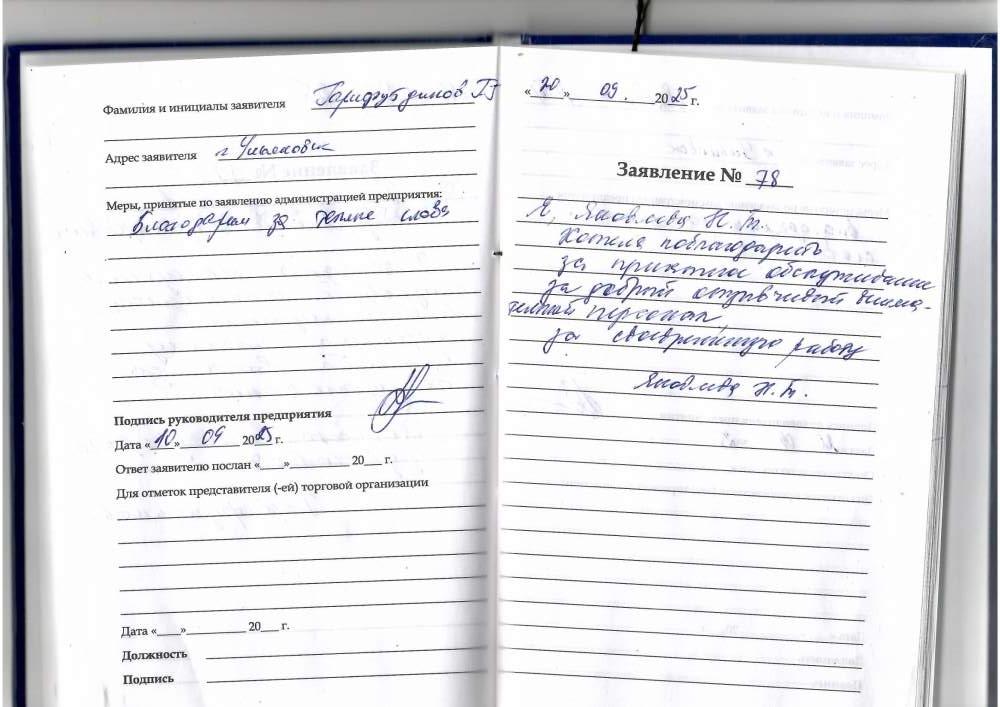 Фамилия и инициалы заявителя Гарифутдинов ГГ
Адрес заявителя г Ульяновск
Меры, принятые по заявлению администрацией предприятия:
Благодарим за теплые слова
Подпись руководителя предприятия
Дата «10» 09 2025 г.
Ответ заявителю послан «___»__________ 20___ г.
Для отметок представителя (-ей) торговой организации
Дата «___»__________ 20___ г.
Должность
Подпись
«20» 09. 2025 г.
Заявление № 78
Я, Яковлева Н. Т.
Хотела поблагодарить
за приятное обслуживание
за добрый отзывчивый внима-
тельный персонал,
за своевременную работу
Яковлева Н. Т.